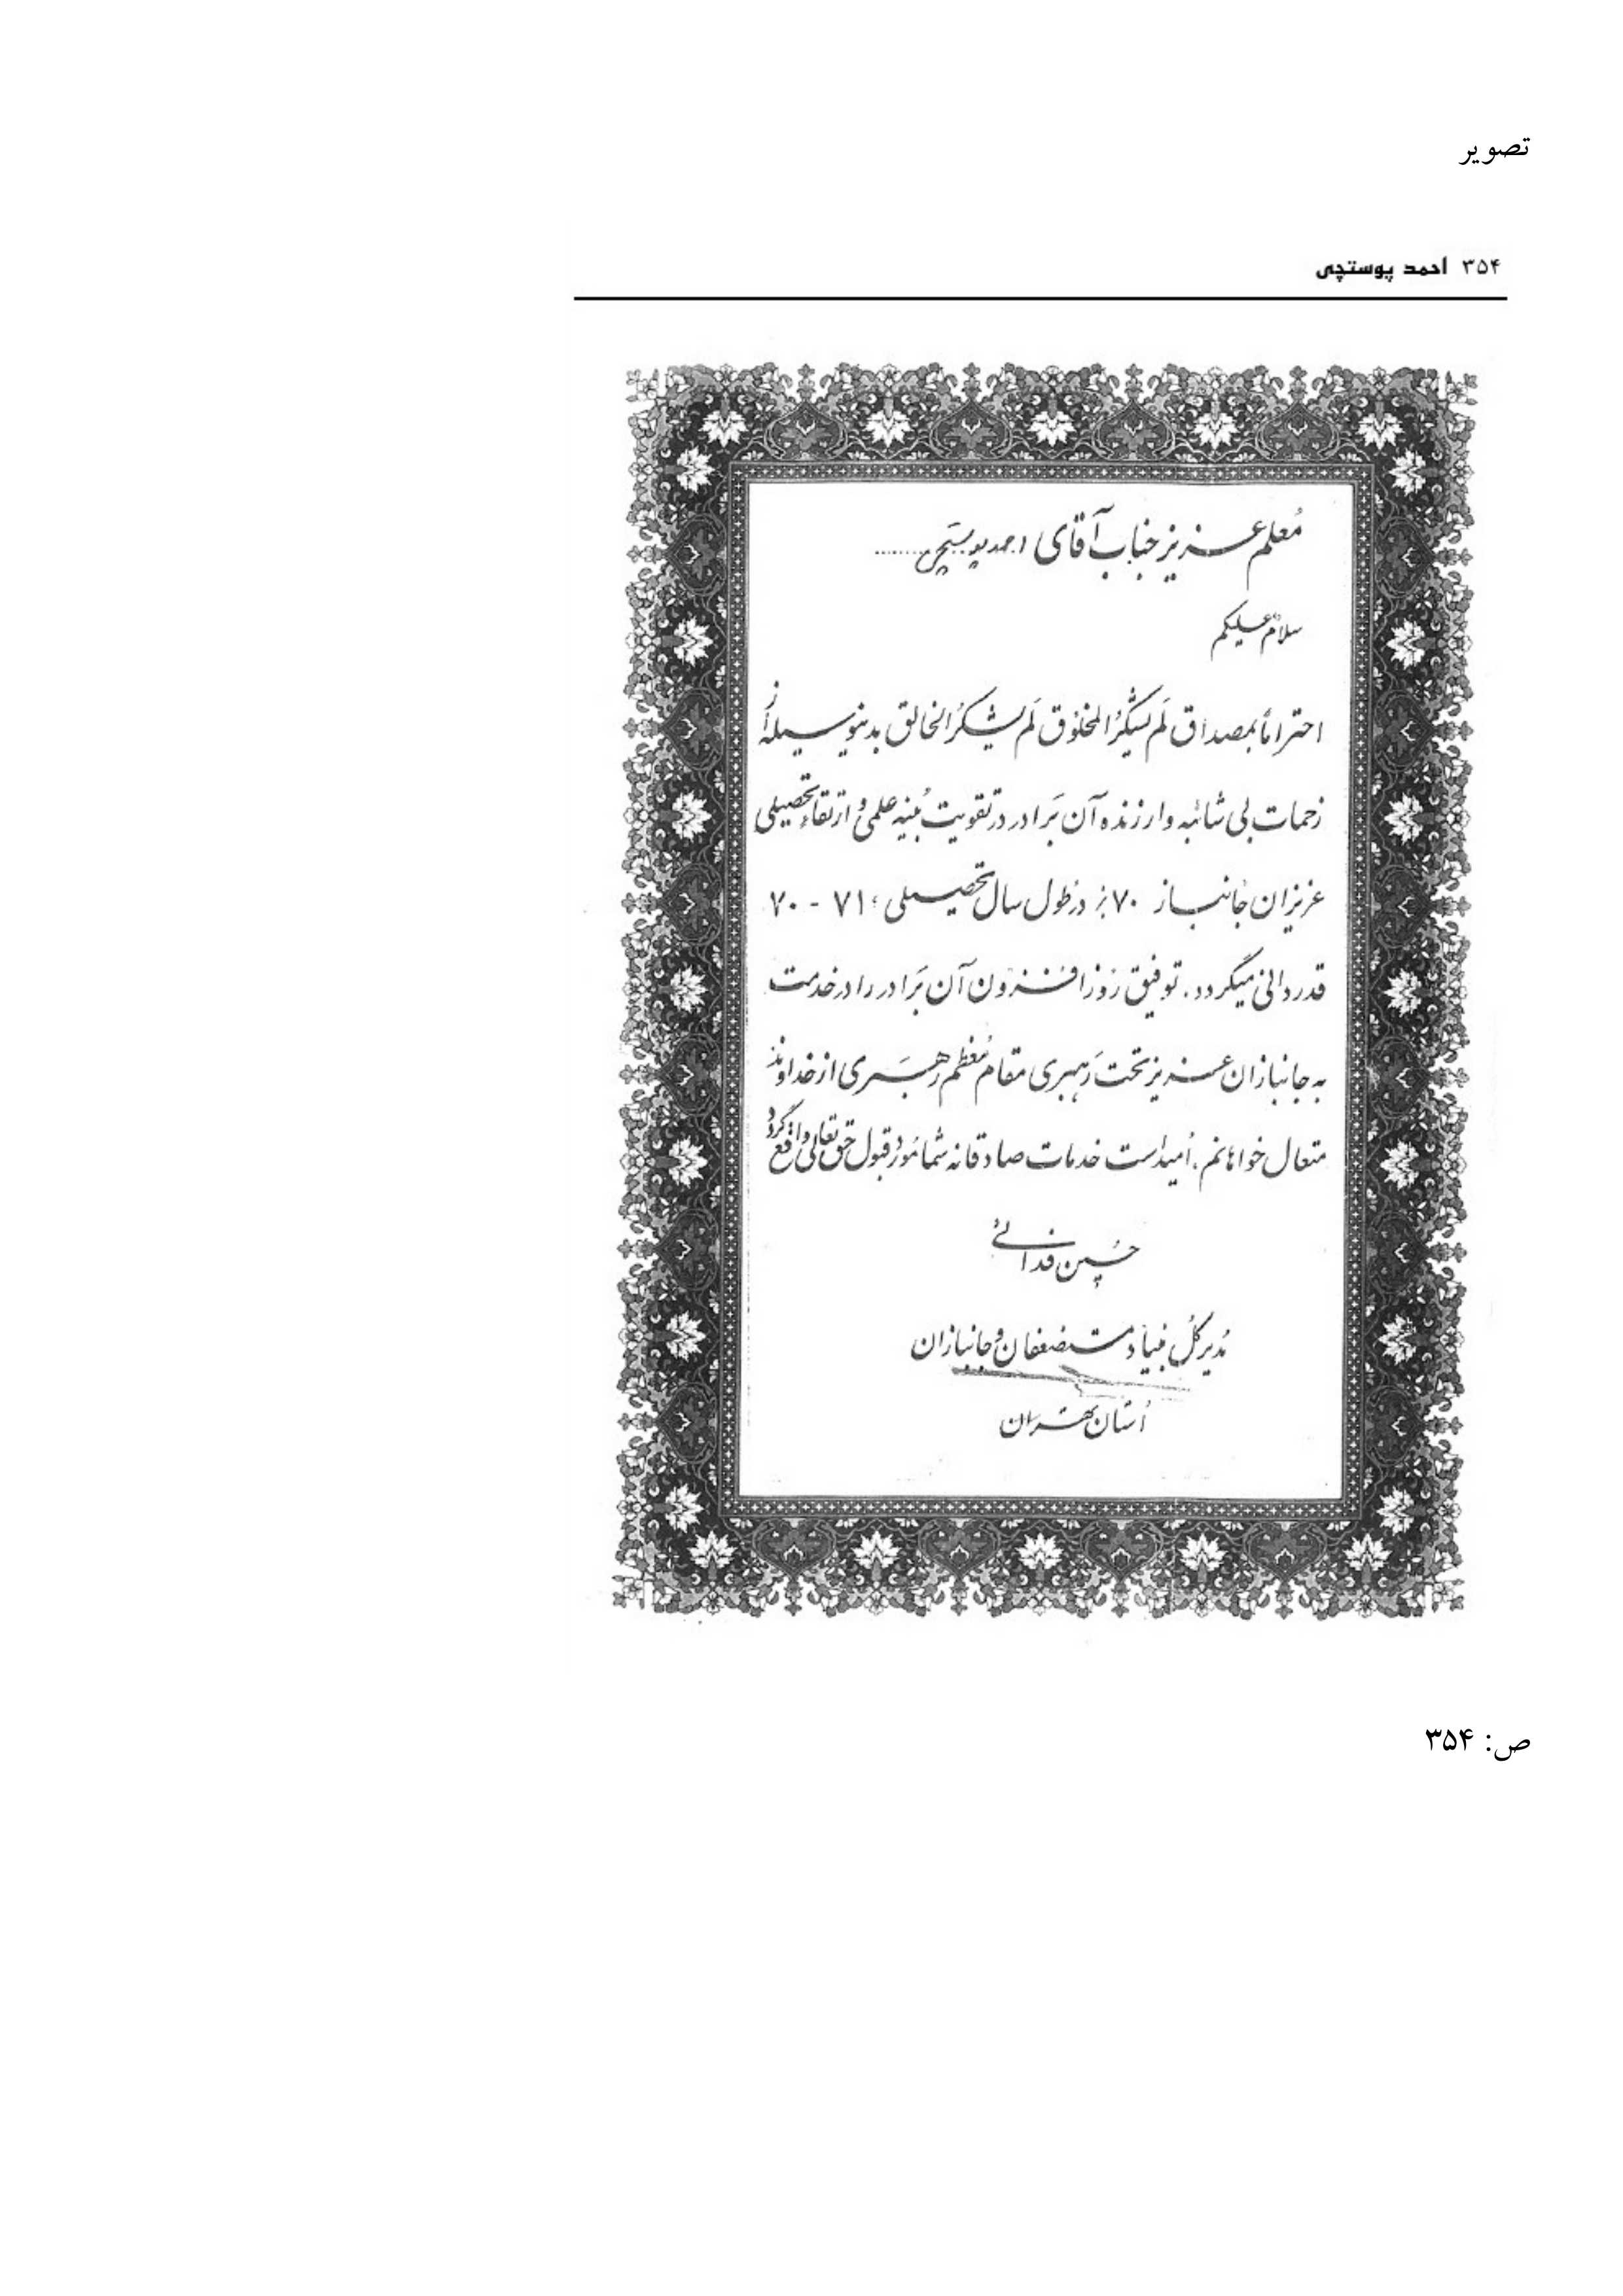 تصویر
۳۵۴ احمد پوستچی
مُعلم عزیز جناب آقای احمد پوستچی........
سلامٌ علیکم
احتراماً بمصداق لَم یَشکُرُ المخلوُق لَم یَشکرُ الخالق بدینوسیله از
زحمات بی شائبه و ارزنده آن بَرادر در تقویت بُنیه علمی و ارتقاء تحصیلی
عزیزان جانباز ۷۰٪ در طول سال تحصیلی ۷۱ - ۷۰
قدردانی میگردد. توفیق روزافزون آن بَرادر را در خدمت
به جانبازان عزیز تحت رَهبری مقام مُعظم رهبَری از خداوند
متعال خواهانم. اُمید است خدمات صادقانه شما مُورد قبول حق تعالی واقع گردد
حُسین فدائی
مُدیر کُل بنیاد مستضعفان و جانبازان
اُستان تهران
ص: ۳۵۴